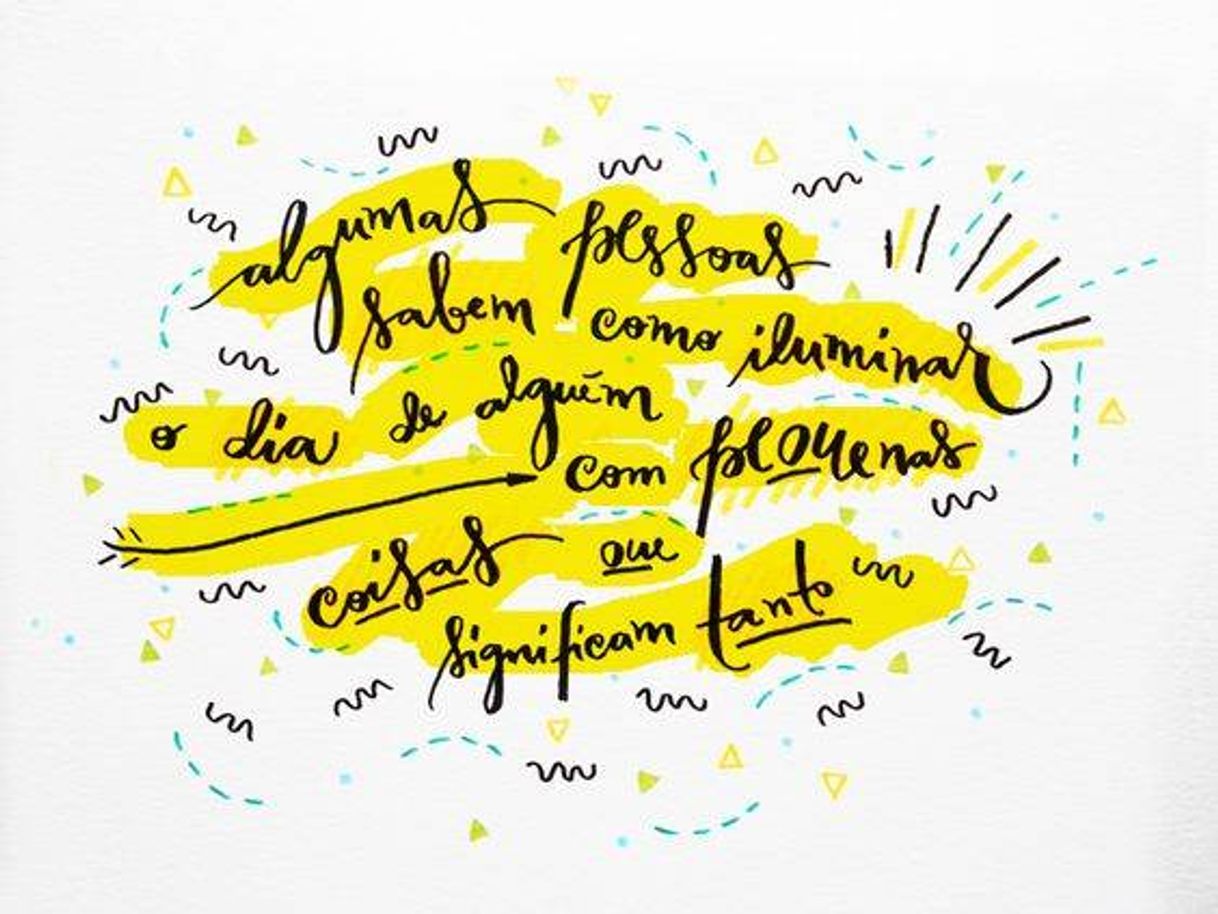 algumas pessoas
sabem como iluminar
o dia de alguém
com pequenas
coisas que
significam tanto